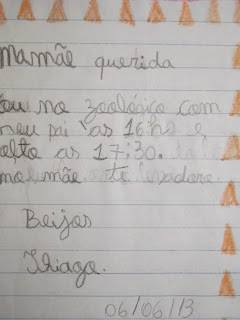 Mamãe querida
ou no zoológico com
meu pai às 16:hs e
olto as 17:30.
mo mãe. ti adoro
Beijos
Thiago.
06/06/13